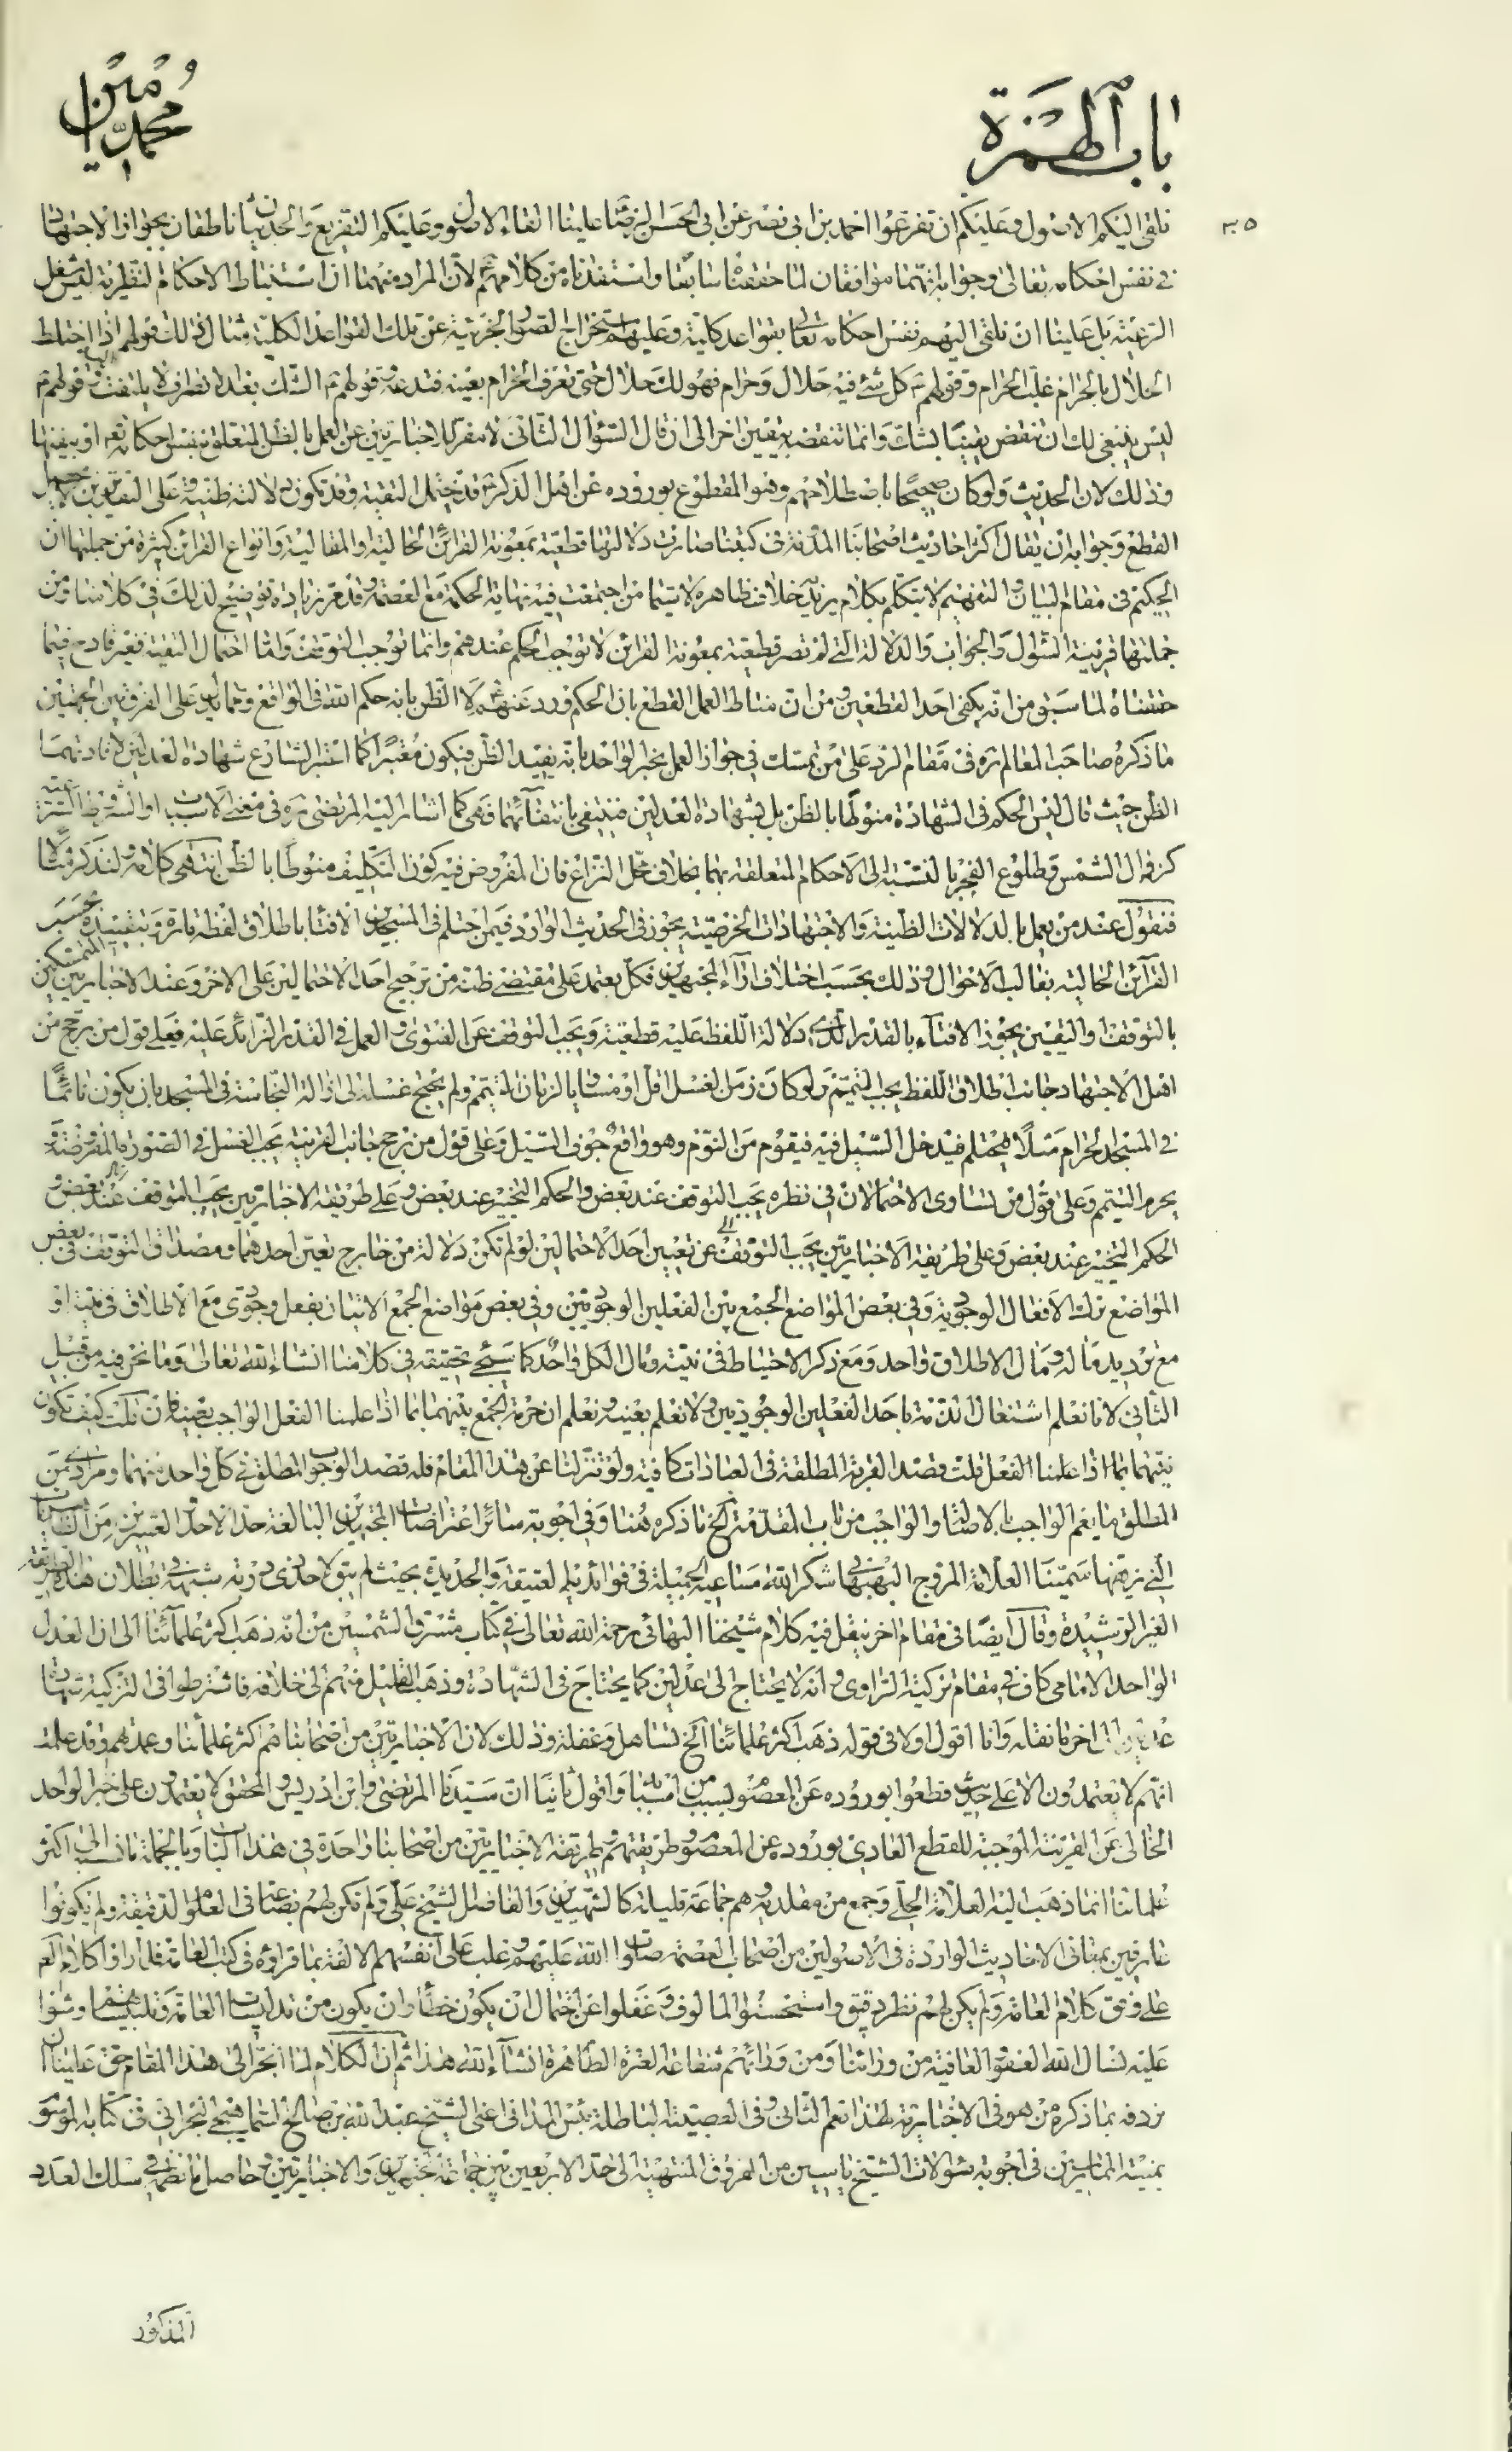 باب الهمزة
محمد امين
٣٥
نلقى اليكم الاصول وعليكم ان تفرعوا احمد بن ابى نصر عن ابى الحسن الرضا علينا القاء الاصول وعليكم التفريع والحديثان ناطقان بجواز الاجتهاد
فى نفس احكامه تعالى وجوابه انهما موافقان لما حققناه سابقا واستفدناه من كلامهم لان المراد منهما ان استنباط الاحكام النظرية ليس شغل
الرعية بل علينا ان نلقى اليهم نفس احكامه تعالى بقواعد كلية وعليهم استخراج الصور الجزئية عن تلك القواعد الكلية مثال ذلك قولهم اذا اختلط
الحلال بالحرام غلب الحرام وقولهم كل شئ فيه حلال وحرام فهو لك حلال حتى تعرف الحرام بعينه فتدعه وقولهم الشك بعد الانصراف لا يلتفت اليه وقولهم
ليس ينبغى لك ان تنقض يقينا بشك وانما تنقضه بيقين اخر الى ان قال السؤال الثانى لا مفر للاخباريين عن العمل بالظن المتعلق بنفس احكامه تعالى او بنفيها
وذلك لان الحديث ولو كان صحيحا باصطلاحهم وهو المقطوع بوروده عن اهل الذكر قد يحتمل التقية وقد تكون دلالته ظنية وعلى التقديرين لا يحصل
القطع وجوابه ان يقال اكثر احاديث اصحابنا المدونة فى كتبنا صارت دلالتها قطعية بمعونة القرائن الحالية والمقالية وانواع القرائن كثيرة من جملتها ان
الحكيم فى مقام البيان والتفهيم لا يتكلم بكلام يريد به خلاف ظاهره لا سيما من اجتمعت فيه نهاية الحكمة مع العصمة وقد مر زيادة توضيح لذلك فى كلامنا ومن
جملتها قرينة السؤال والجواب والدلالة التى لم تصر قطعية بمعونة القرائن لا توجب الحكم عندهم وانما توجب التوقف واما احتمال التقية فغير قادح فيما
حققناه لما سبق من انه يكفى احد القطعين ومن ان مناط العمل القطع بان الحكم ورد عنهم لا الظن بانه حكم الله فى الواقع ومما يدل على الفرق بين الجهتين
ما ذكره صاحب المعالم ره فى مقام الرد على من تمسك فى جواز العمل بخبر الواحد بانه يفيد الظن فيكون معتبرا كما اعتبر الشارع شهادة العدلين لافادتهما
الظن حيث قال ليس الحكم فى الشهادة منوطا بالظن بل بشهادة العدلين فينتفى بانتفائهما فهى كما اشار اليه المرتضى ره فى معنى الاسباب او الشروط الشرعية
كزوال الشمس وطلوع الفجر بالنسبة الى الاحكام المتعلقة بهما بخلاف محل النزاع فان المفروض فيه كون التكليف منوطا بالظن انتهى كلامه ولنذكر مثالا
فنقول عند من يعمل بالدلالات الظنية والاجتهادات الخرصية يجوز فى الحديث الوارد فيمن احتلم فى المسجدين الافتا باطلاق لفظه تارة وبتقييده بحسب
القرائن الحالية بغالب الاحوال وذلك بحسب اختلاف آراء المجتهدين فكل يعتمد على مقتضى ظنه من ترجيح احد الاحتمالين على الاخر وعند الاخباريين المتمسكين
بالتوقف واليقين يجوز الافتاء بالقدر الذى دلالة اللفظ عليه قطعية ويجب التوقف عن الفتوى والعمل فى القدر الزائد عليه فعلى قول من رجح من
اهل الاجتهاد جانب اطلاق اللفظ يجب التيمم ولو كان زمن الغسل اقل او مساويا لزمان التيمم ولم يحتج غسله الى ازالة النجاسة فى المسجد بان يكون نائما
فى المسجد الحرام مثلا فيحتلم فيدخل السيل فيه فيقوم من النوم وهو واقع جوف السيل وعلى قول من رجح جانب القرينة يجب الغسل فى الصورة المفروضة و
يحرم التيمم وعلى قول من تساوى الاحتمالان فى نظره يجب التوقف عند بعض والحكم التخيير عند بعض وعلى طريقة الاخباريين يجب التوقف عند بعض و
الحكم التخيير عند بعض وعلى طريقة الاخباريين يجب التوقف عن تعيين احد الاحتمالين لو لم تكن دلالة من خارج تعين احدهما ومصداق التوقف فى بعض
المواضع ترك الافعال الوجودية وفى بعض المواضع الجمع بين الفعلين الوجوديين وفى بعض مواضع الجمع الاتيان بفعل وجودى مع الاطلاق فى نيته او
مع ترديد ما له ومال الاطلاق واحد ومع ذكر الاحتياط فى نيته ومال الكل واحد كما سيجئ تحقيقه فى كلامنا انشاء الله تعالى وما نحن فيه من قبيل
الثانى لانا نعلم اشتغال الذمة باحد الفعلين الوجوديين ولا نعلم بعينه ونعلم ان حرمة الجمع بينهما انما اذا علمنا الفعل الواجب بعينه فان قلت كيف تكون
نيتهما انما اذا علمنا الفعل قلت قصد القربة المطلقة فى العبادات كافية ولو تنزلنا عن هذا المقام فله قصد الوجوب المطلق فى كل واحد منهما ومرادى من
المطلق ما يعم الواجب بالاصالة والواجب من باب المقدمة الخ ما ذكره هنا وفى اجوبة سائر اعتراضات المجتهدين البالغة حد الاحد والعشرين من
التى نزهها سمينا العلامة المروج البهبهانى شكر الله مساعيه الجميلة فى فوائديه العتيقة والجديدة بحيث لم يبق لاحد ذى دربة شبهة فى بطلان هذه الطريقة
الغير الرشيدة وقال ايضا فى مقام اخر ينقل فيه كلام شيخنا البهائى رحمة الله تعالى فى كتاب مشرق الشمسين من انه ذهب اكثر علمائنا الى ان العدل
الواحد الامامى كاف فى مقام تزكية الراوى وانه لا يحتاج الى عدلين كما يحتاج فى الشهادة وذهب القليل منهم الى خلافه فاشترطوا فى التزكية شهادة
عدلين الى اخر ما نقله وانا اقول اولا فى قوله ذهب اكثر علمائنا الخ تساهل وغفلة وذلك لان الاخباريين من اصحابنا هم اكثر علمائنا وعمدتهم وقد علمت
انهم لا يعتمدون الا على حديث قطعوا بوروده عن المعصوم بسبب من اسبابه واقول ثانيا ان سيدنا المرتضى وابن ادريس والمحقق لا يعتمدون على خبر الواحد
الخالى عن القرينة الموجبة للقطع العادى بوروده عن المعصوم وطريقتهم وطريقة الاخباريين من اصحابنا واحدة فى هذا الباب وبالجملة ما نسبه الى اكثر
علمائنا انما ذهب اليه العلامة الحلى وجمع من مقلديه وهم جماعة قليلة كالشهيدين والفاضل الشيخ على ولم تكن لهم بضاعة فى العلوم الدقيقة ولم يكونوا
عارفين بمعانى الاحاديث الواردة فى الاصولين من اصحاب العصمة صلوات الله عليهم وغلب على انفسهم الالفة بما قرأوه فى كتب العامة فلما رأوا كلام
على وفق كلام العامة ولم يكن لهم نظر دقيق واستحسنوا المألوف وغفلوا عن احتمال ان يكون خطأ وان يكون من تدليسات العامة وتلبيساتهم مشوا
عليه نسأل الله العفو والعافية من ورائنا ومن ورائهم شفاعة العترة الطاهرة انشاء الله هذا ثم ان الكلام لما انجر الى هذا المقام حق علينا ان
نردفه بما ذكره من هو فى الاخبارية لهذا نعم الثانى وفى العصبية الباطلة بئس المذاق اعنى الشيخ عبد الله بن صالح السماهيجى البحرانى فى كتابه الموسوم
بمنية الممارسين فى اجوبة سؤالات الشيخ ياسين من الفروق المنتهية الى حد الاربعين بين جماعة المجتهدين والاخباريين وحاصل ما نظمه فى سلك العدد
المذكور